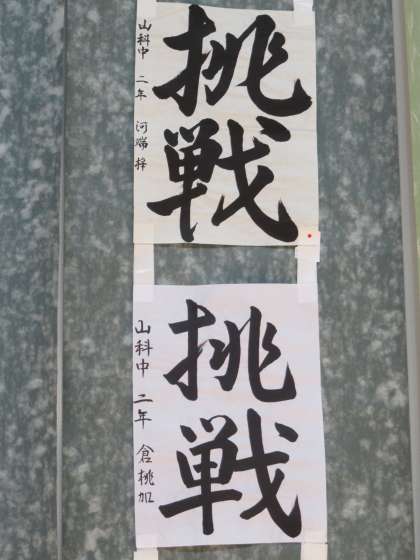 挑戦
山科中 二年 河端 梓
挑戦
山科中 二年 倉 桃加